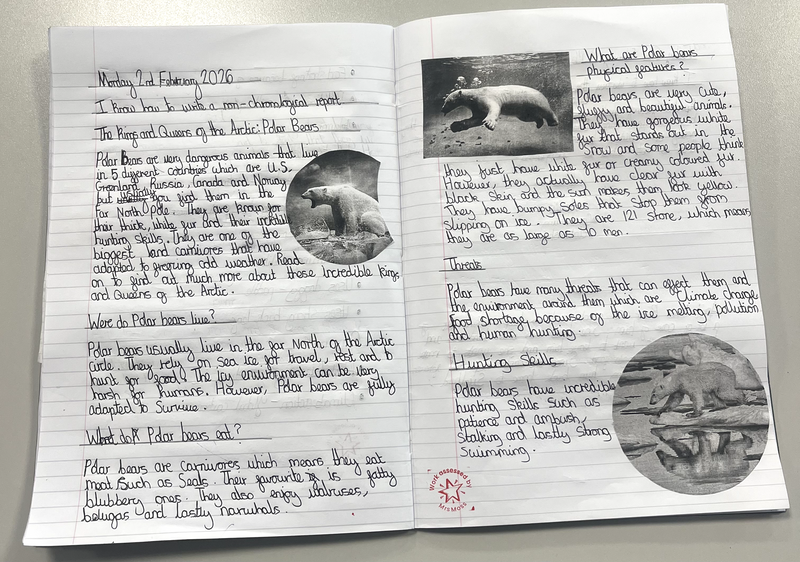 Monday 2nd February 2026
I know how to write a non-chronological report
The Kings and Queens of the Arctic: Polar Bears
Polar Bears are very dangerous animals that live
in 5 different countries which are U.S,
Greenland, Russia, Canada and Norway
but usually you find them in the
Far North Pole. They are known for
their thick, white fur and their incredible
hunting skills. They are one of the
biggest land carnivores that have
adapted to freezing cold weather. Read
on to find out much more about these Incredible Kings
and Queens of the Arctic.
Were do Polar bears live?
Polar bears usually live in the far North of the Arctic
circle. They rely on sea ice for travel, rest and to
hunt for food! The icy enviroment can be very
harsh for humans. However, Polar bears are fully
adapted to Survive.
What do Polar bears eat?
Polar bears are carnivores which means they eat
meat such as Seals. Their favourite is fatty
blubbery ones. They also enjoy walruses,
belugas and lastly narwhals.
What are Polar bears
physical features?
Polar bears are very cute,
fluffy and beautiful animals.
They have gorgeous white
fur that stands out in the
snow and some people think
they just have white fur or creamy coloured fur.
However, they actually have clear fur with
black skin and the sun makes them look yellow.
They have bumpy soles that stop them from
slipping on ice. They are 121 stone, which means
they are as large as 10 men.
Threats
Polar bears have many threats that can effect them and
the environment around them which are climate change
food shortage because of the ice melting, pollution
and human hunting.
Hunting Skills
Polar bears have incredible
hunting skills such as
patience and ambush,
stalking and lastly strong
swimming.
Work assessed by
Mrs Moss